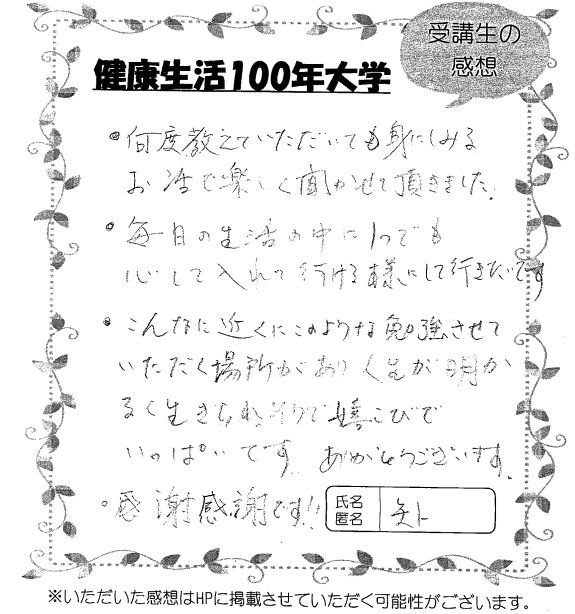 受講生の
感想
健康生活100年大学
・何度教えていただいても身にしみる
お話で楽しく聞かせて頂きました。
・毎日の生活の中に1つでも
心して入れて行ける様にして行きたいです
・こんなに近くにこのような勉強させて
いただく場所があり人生が明か
るく生きられそうで嬉こびで
いっぱいです。ありがとうございます。
・感謝感謝です!!
氏名
匿名
※いただいた感想はHPに掲載させていただく可能性がございます。